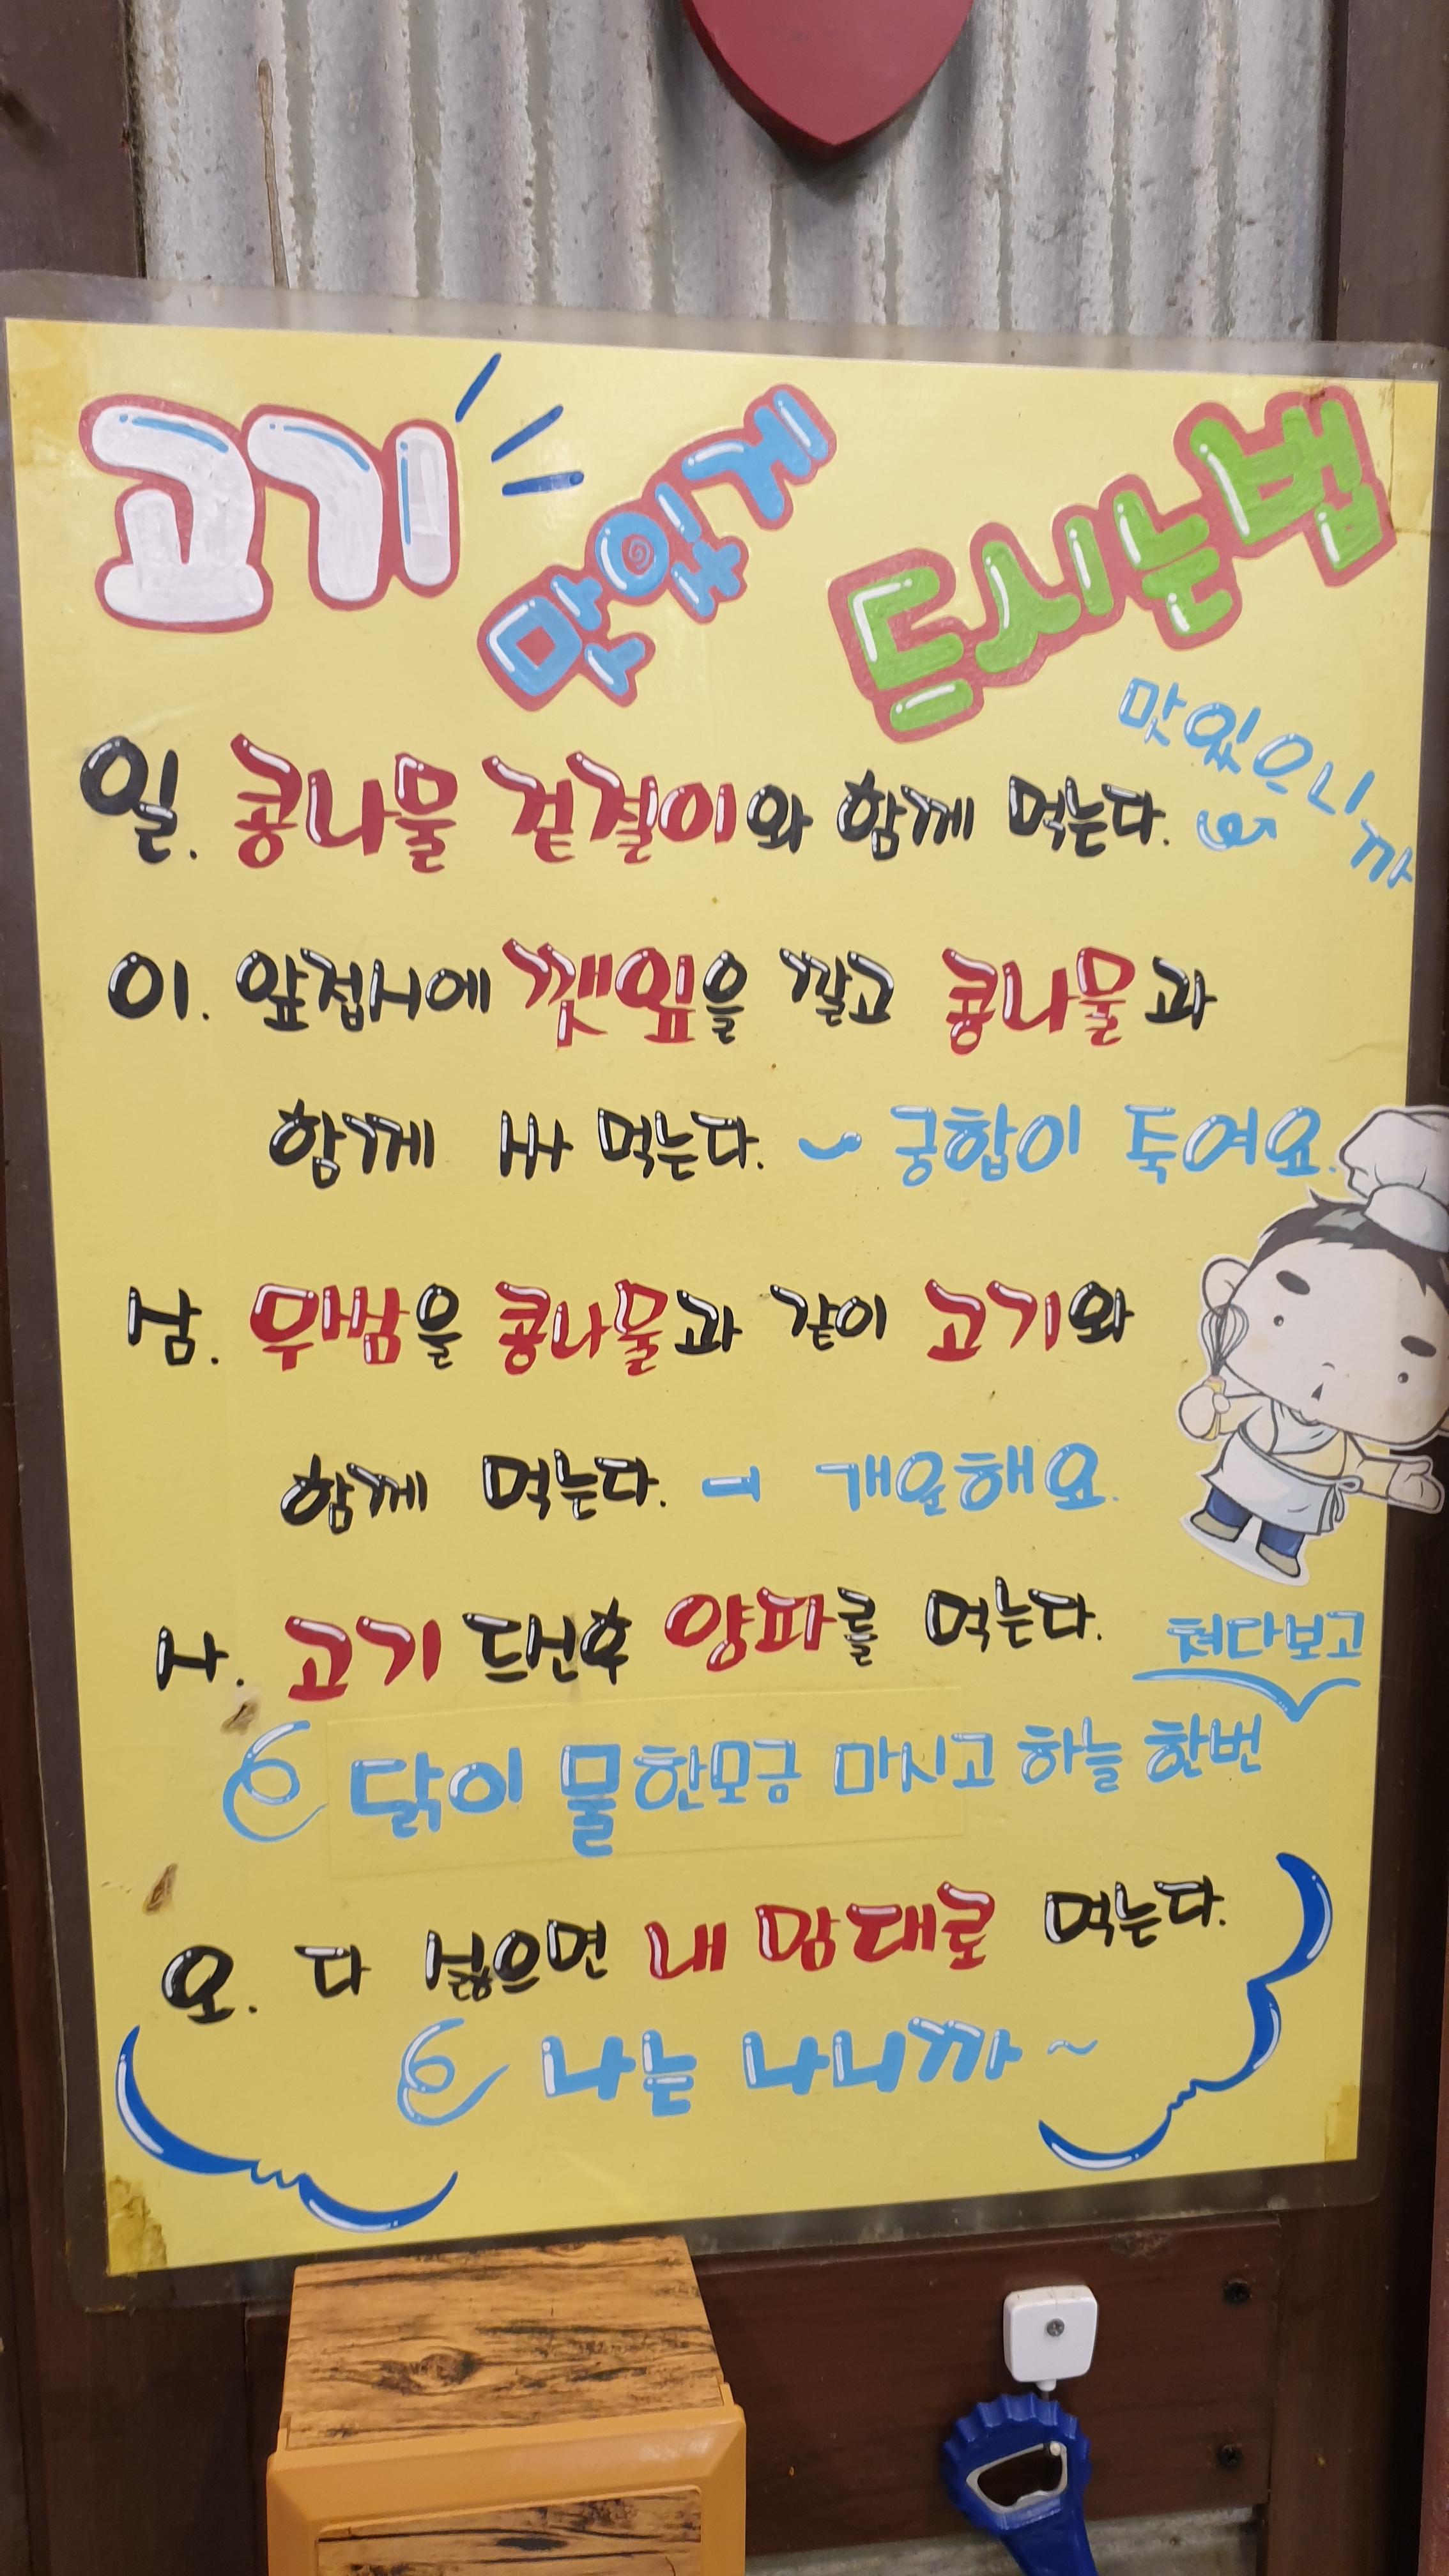 고기 맛있게 드시는법
일. 콩나물 겉절이와 함께 먹는다.
맛있으니까
이. 앞접시에 깻잎을 깔고 콩나물과
함께 싸 먹는다. ~ 궁합이 죽여요.
삼. 무쌈을 콩나물과 같이 고기와
함께 먹는다. - 개운해요.
사. 고기 드신후 양파를 먹는다.
닭이 물한모금 마시고 하늘 한번
쳐다보고
오. 다 싫으면 내 맘대로 먹는다.
나는 나니까~